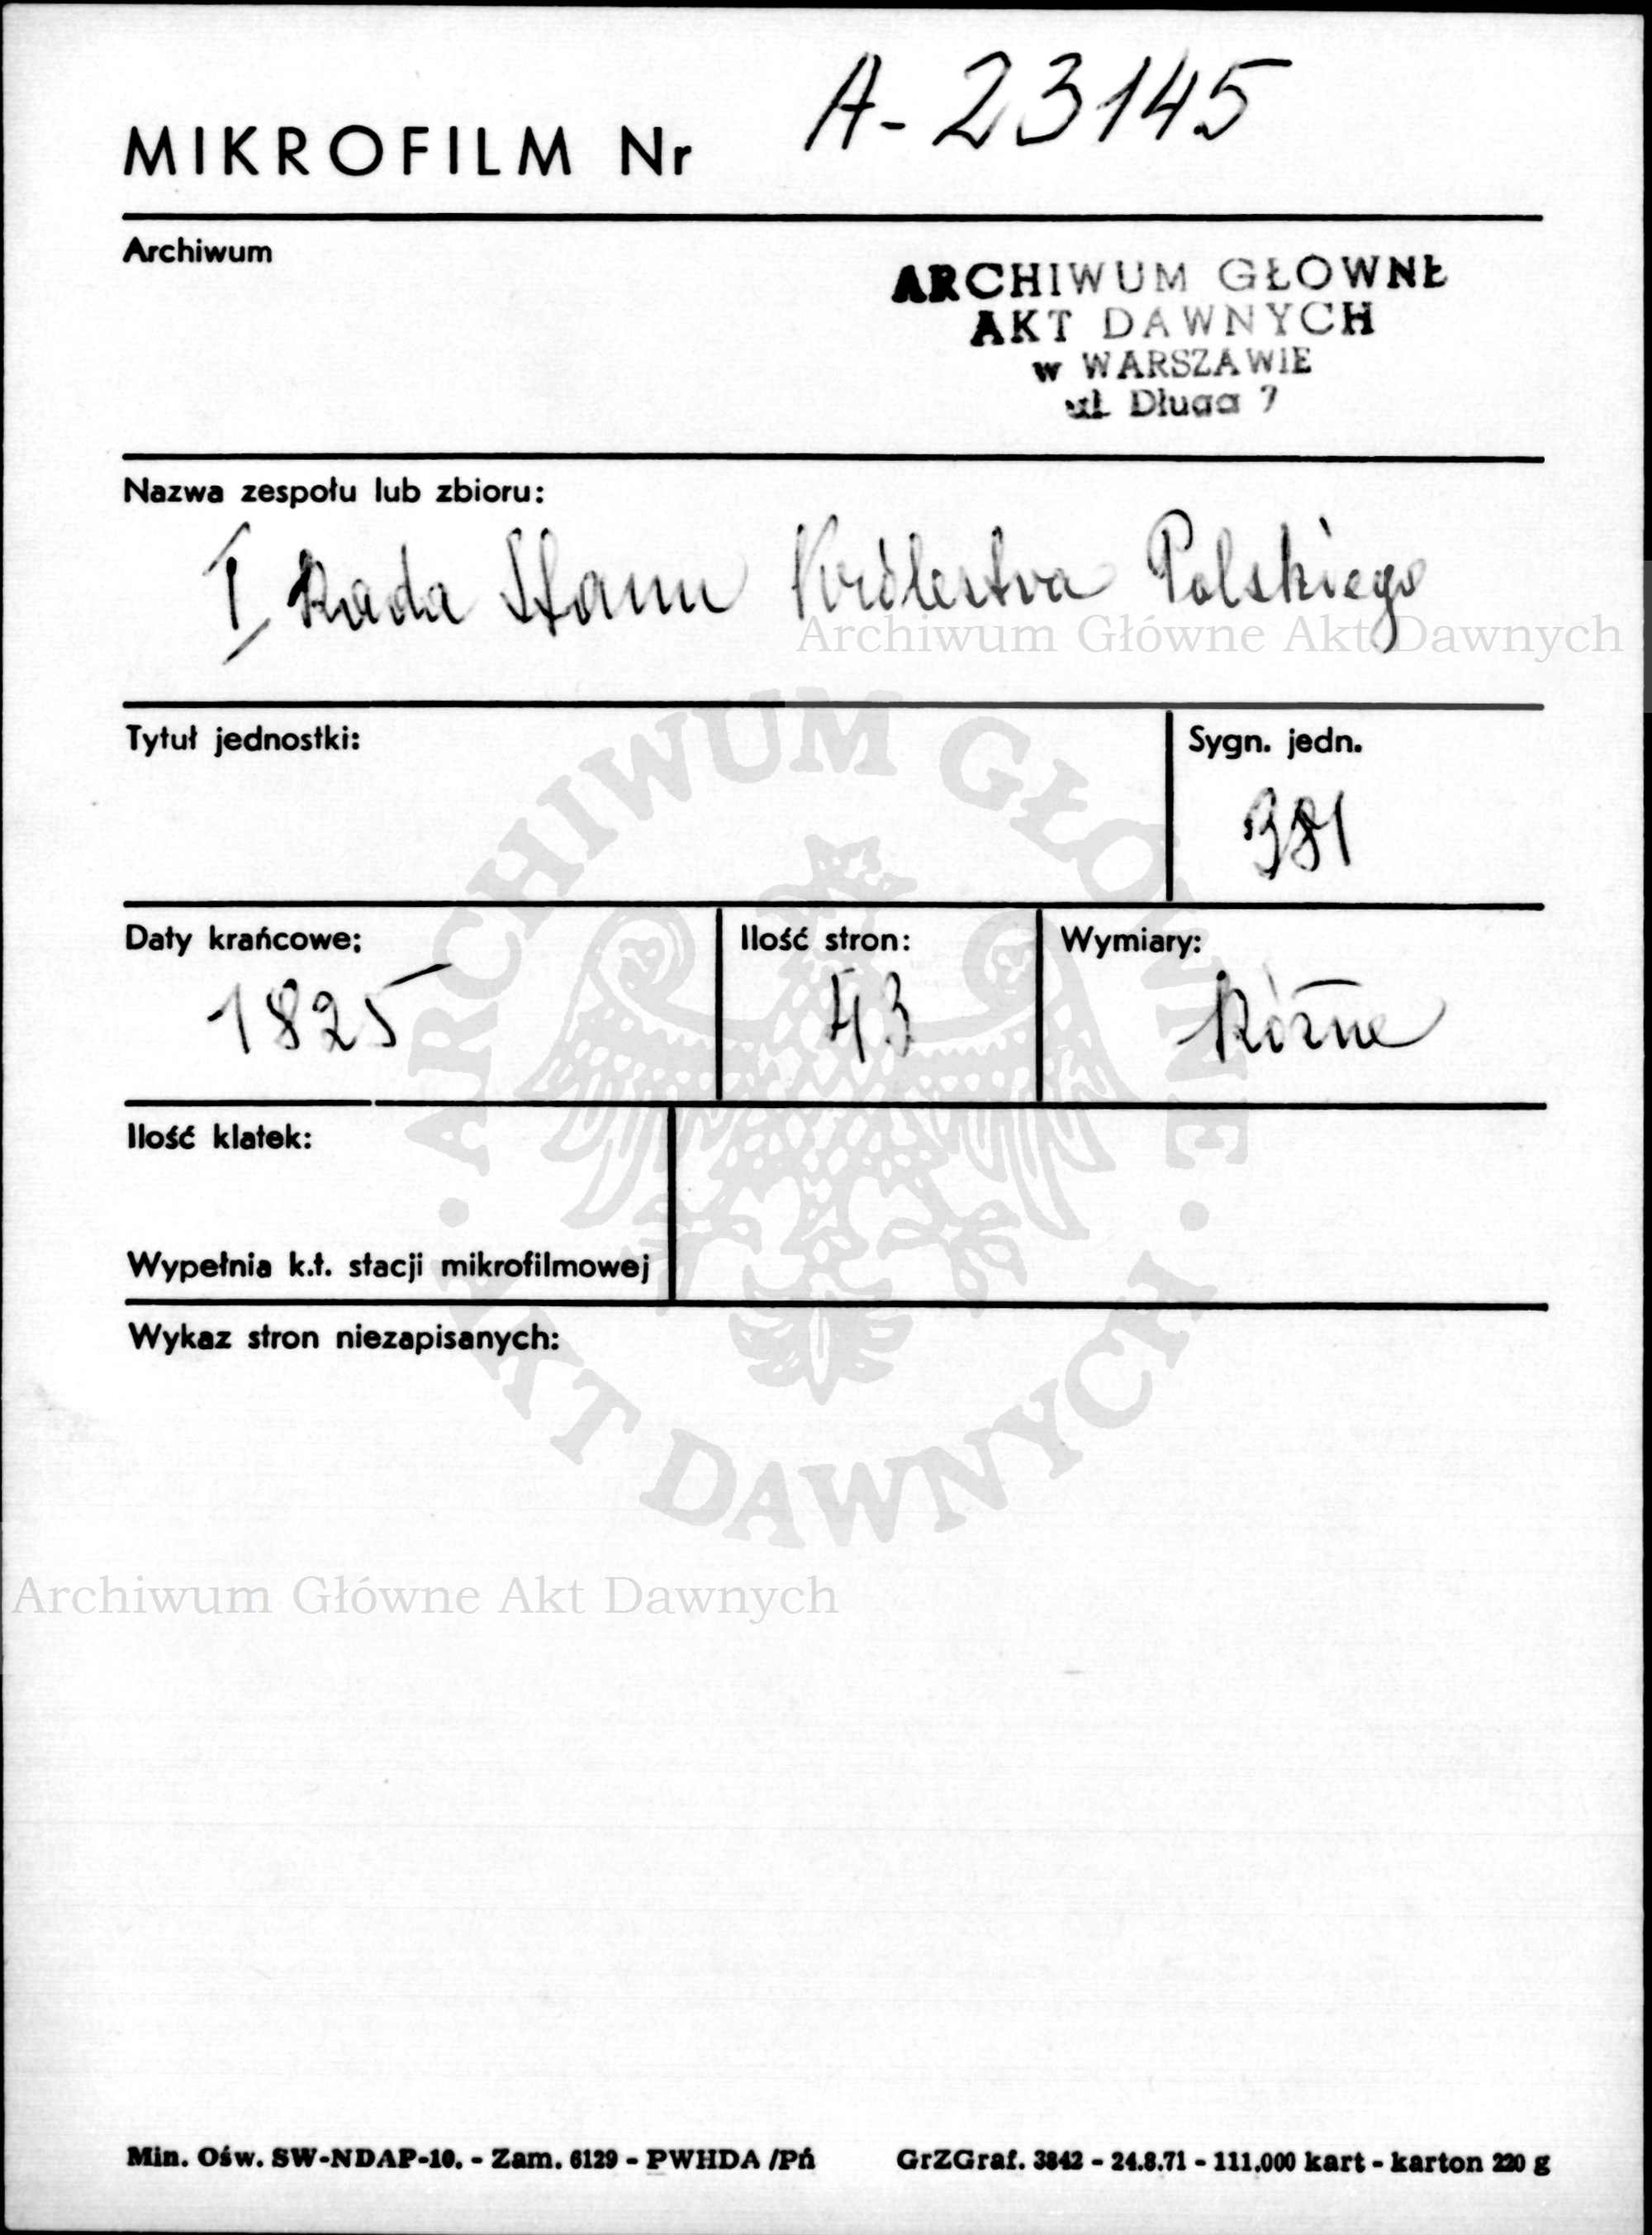 A-23145
MIKROFILM Nr
Archiwum
ARCHIWUM GŁOWNE
AKT DAWNYCH
w WARSZAWIE
ul. Długa 7
Nazwa zespołu lub zbioru:
I Rada Stanu Królestwa Polskiego
Archiwum Główne Akt Dawnych
Tytuł jednostki:
Sygn. jedn.
381
Daty krańcowe;
Ilość stron:
Wymiary:
1825
43
Różne
ARCHIWUM GŁÓWNE
Ilość klatek:
Wypełnia k.t. stacji mikrofilmowej
Wykaz stron niezapisanych:
AKT DAWNYCH
Archiwum Główne Akt Dawnych
Min. Ośw. SW-NDAP-10. - Zam. 6129 - PWHDA /Pń GrZGraf. 3842 - 24.8.71 - 111.000 kart - karton 220 g